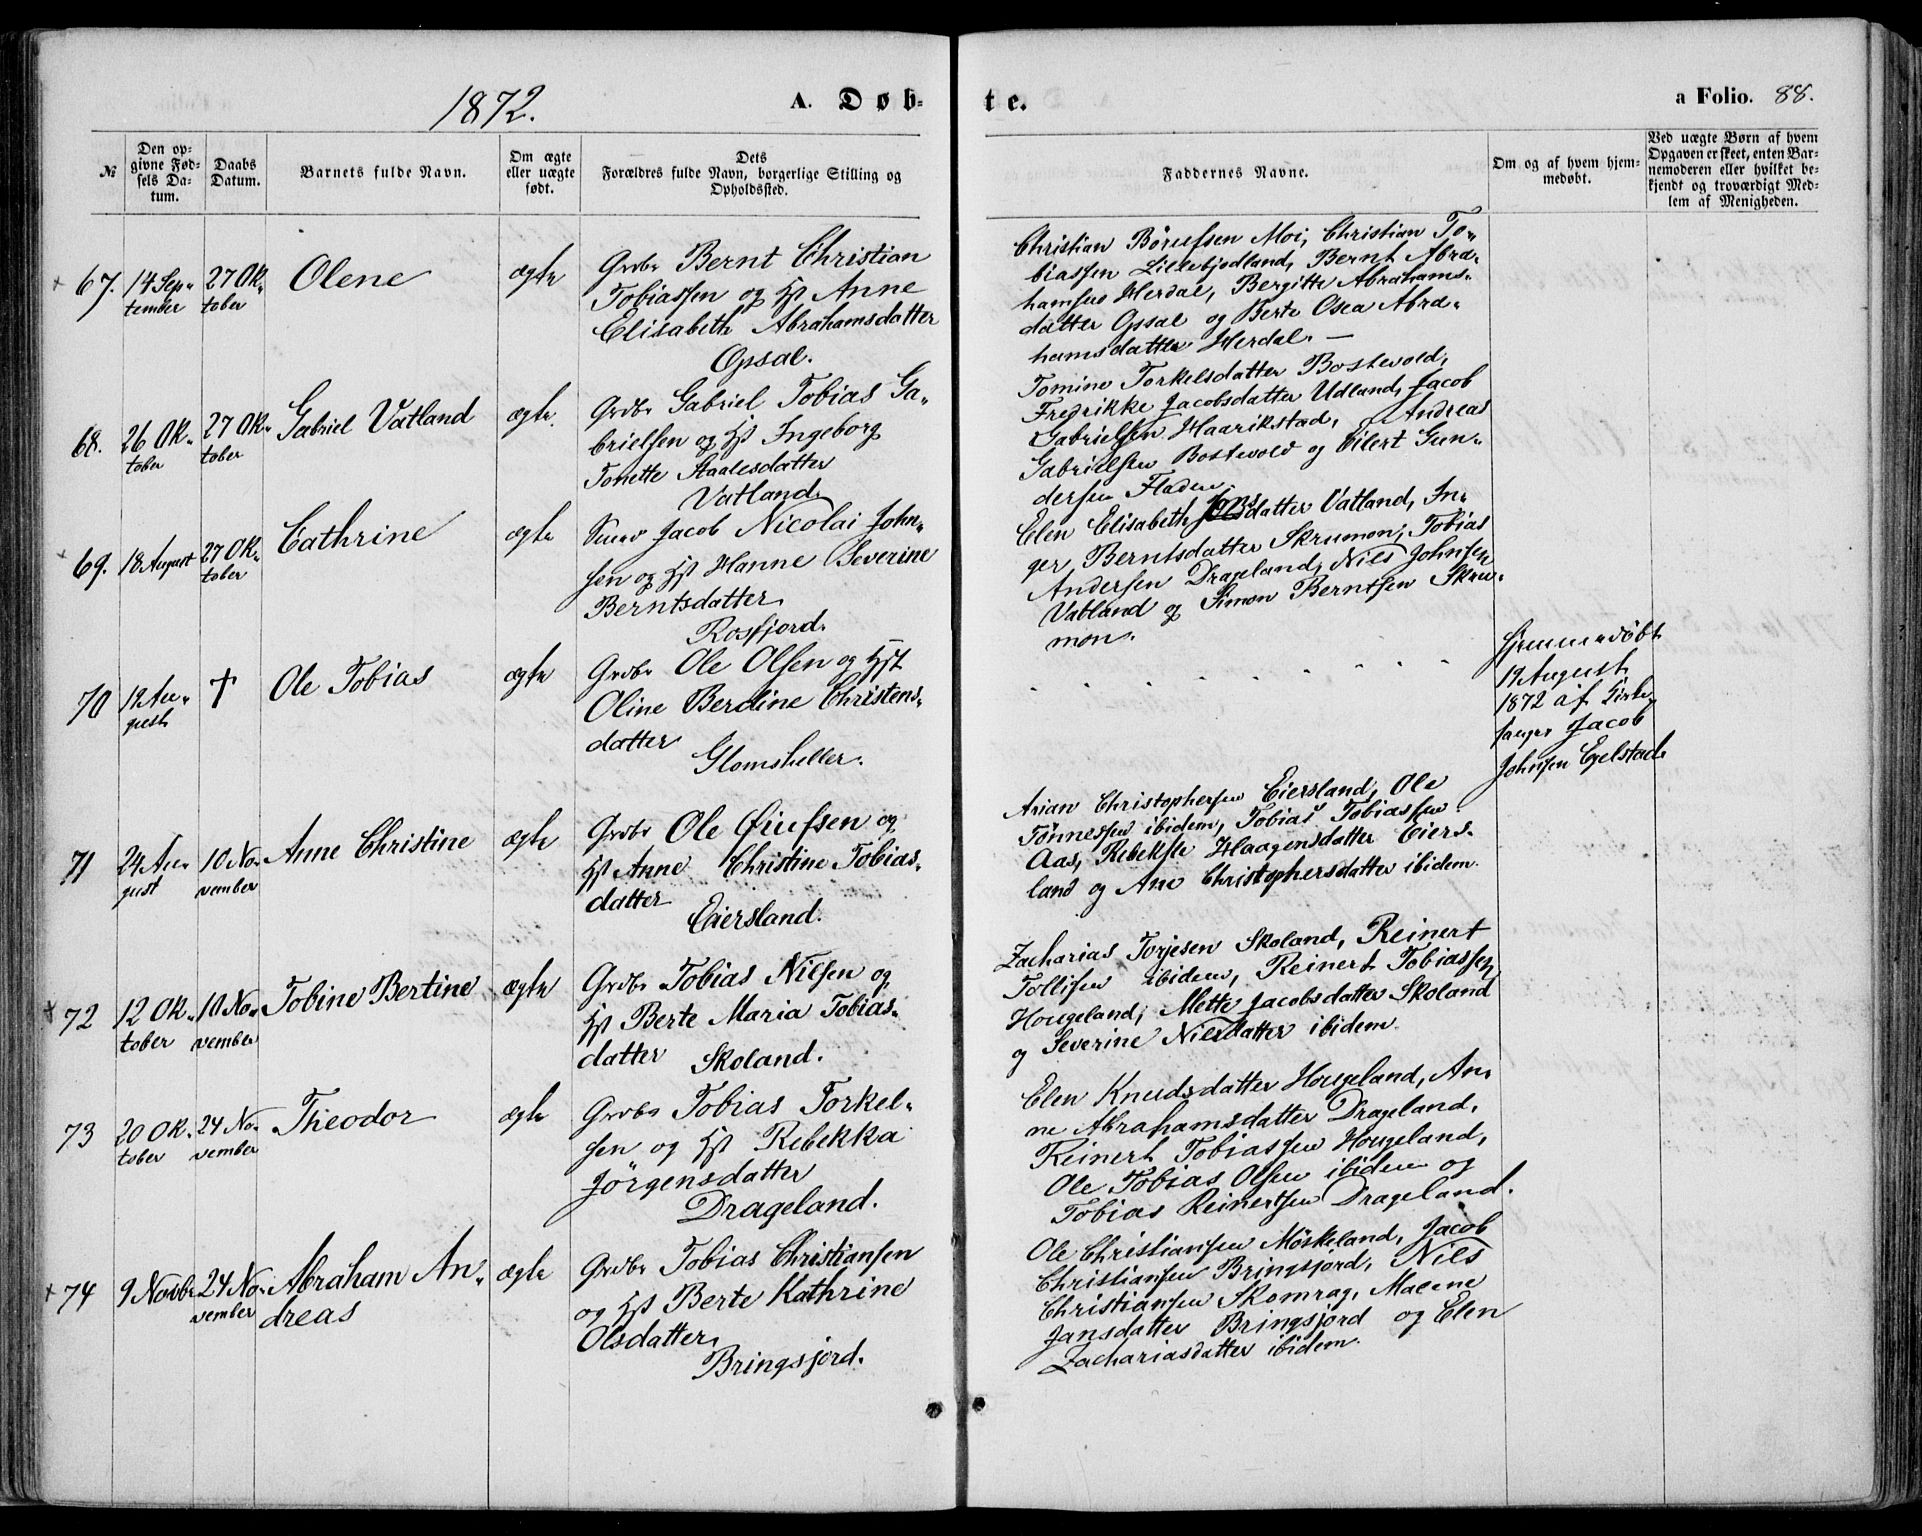 1872.
A. Døb-
te.
a Folio. 88.
№
Den op-
givne Fød-
sels Da-
tum.
Daabs
Datum.
Barnets fulde Navn.
Om ægte
eller uægte
født.
Dets
Forældres fulde Navn, borgerlige Stilling og
Opholdssted.
Faddernes Navne.
Om og af hvem hjem-
medøbt.
Ved uægte Børn af hvem
Opgaven er skeet, enten Bar-
nemoderen eller hvilket be-
kjendt og troværdigt Med-
lem af Menigheden.
67.
14 Sep-
tember
27 Ok-
tober
Olene
ægte
Grdbr Bernt Christian
Tobiassen og Hst Anne
Elisabeth Abrahamsdatter
Opsal.
Christian Børufsen Moi, Christian To-
biassen Lillebjodland, Bernt Abra-
hamsen Herdal, Bergitte Abrahams-
datter Opsal og Berte Osea Abra-
hamsdatter Herdal. —
68.
26 Ok-
tober
27 Ok-
tober
Gabriel Vatland
ægte.
Grdbr Gabriel Tobias Ga-
brielsen og Hst Ingeborg
Tonette Staalesdatter
Vatland.
Tomine Torkelsdatter Bostevold,
Fredrikke Jacobsdatter Udland, Jacob
Gabrielsen Haarikstad, Andreas
Gabrielsen Bostevold og Eilert Gun-
dersen Fladen.
69.
18 August
27 Ok-
tober
Cathrine
ægte
Jacob Nicolai John-
sen og Hst Hanne Severine
Berntsdatter
Rosfjord.
Elen Elisabeth Jonsdatter Vatland, In-
ger Berntsdatter Skrumon, Tobias
Andersen Drageland, Nils Johnsen
Vatland og Simon Berntsen Skru-
mon.
70
19 Au-
gust
†
Ole Tobias
ægte
Grdbr Ole Olsen og Hst
Oline Berdine Christens-
datter
Glomsheller.
Hjemmedöbt
19 August
1872 af Kirke-
sanger Jacob
Johnsen Egelstad.
71
24 Au-
gust
10 No-
vember
Anne Christine
ægte
Grdbr Ole Øiufsen og
Hst Anne Christine Tobias-
datter
Eiersland.
Arian Christophersen Eiersland, Ole
Tønnessen ibidem, Tobias Tobiassen
Aas, Rebekke Haagensdatter Eiers-
land og Ane Christophersdatter ibidem.
72
12 Ok-
tober
10 No-
vember
Tobine Bertine
ægte
Grdbr Tobias Nilsen og
Hst Berte Maria Tobias-
datter Skoland.
Zacharias Torjesen Skoland, Reinert
Tollisen ibidem, Reinert Tobiassen
Hougeland, Mette Jacobsdatter Skoland
og Severine Nilsdatter ibidem.
73
20 Ok-
tober
24 No-
vember
Theodor
ægte
Grdbr Tobias Torkel-
sen og Hst Rebekka
Jörgensdatter
Drageland.
Elen Knudsdatter Hougeland, An-
ne Abrahamsdatter Drageland,
Reinert Tobiassen Hougeland,
Ole Tobias Olsen ibidem og
Tobias Reinertsen Drageland.
74
9 Novbr
24 No-
vember
Abraham An-
dreas
ægte
Grdbr Tobias Christiansen
og Hst Berte Kathrine
Olsdatter
Bringsjord.
Ole Christiansen Möskeland, Jacob
Christiansen Bringsjord, Nils
Christiansen Skomrag, Malene
Jansdatter Bringsjord og Elen
Zachariasdatter ibidem.